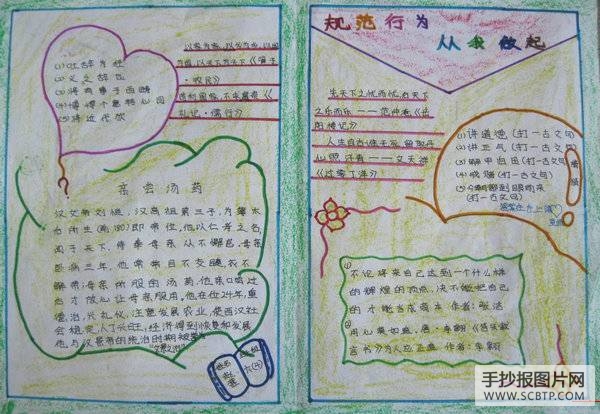 (1)吐辞为经
(2)
(3)将
(4)
(5)将近代欲
以家为家,以乡为乡,以国
为国,以天下为天下《管子
·牧民》
礼记·儒行》
亲尝汤药
汉文帝刘恒,汉高祖第三子,为薄太
后所生(前180)即帝位,他以仁孝之名
闻于天下,侍奉母亲从不懈怠,母亲
卧病三年,他常常目不交睫,衣不
解带母亲所服的汤药,他亲口尝过
后才放心让母亲服用,他在位24年,重
德治,兴礼仪,注意发展农业,使西汉社
会稳定,人丁兴旺,经济得到恢复和发展
他与汉景帝的统治时期被誉为
“文景之治”
规范行为
从我做起
先天下之忧而忧,后天下
之乐而乐——范仲淹《岳
阳楼记》
人生自古谁无死,留取丹
心照汗青——文天祥
《过零丁洋》
(1)讲道德(打一古文句)
(2)讲正气(打一古文句)
(3)解甲归田(打一古文句)
(4)(打一古文句)
(5)
(打一古文句)
答案在左上
①
不论将来自己达到一个什么样
的辉煌的顶点,决不能把自己
的才能当成资本 作者:张洁
②
作者:李翱
手抄报图片网
WWW.SCBTP.COM